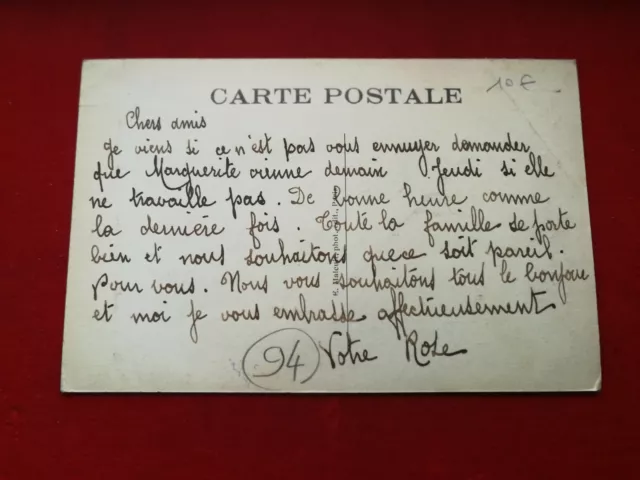 CARTE POSTALE
10 €
Chers amis
Je viens si ce n'est pas vous ennuyer demander
que Marguerite vienne demain Jeudi si elle
ne travaille pas. De bonne heure comme
la dernière fois. Toute la famille se porte
bien et nous souhaitons quece soit pareil.
pour vous. Nous vous souhaitons tous le bonjour
et moi je vous embrasse affectueusement
94 Votre Rose